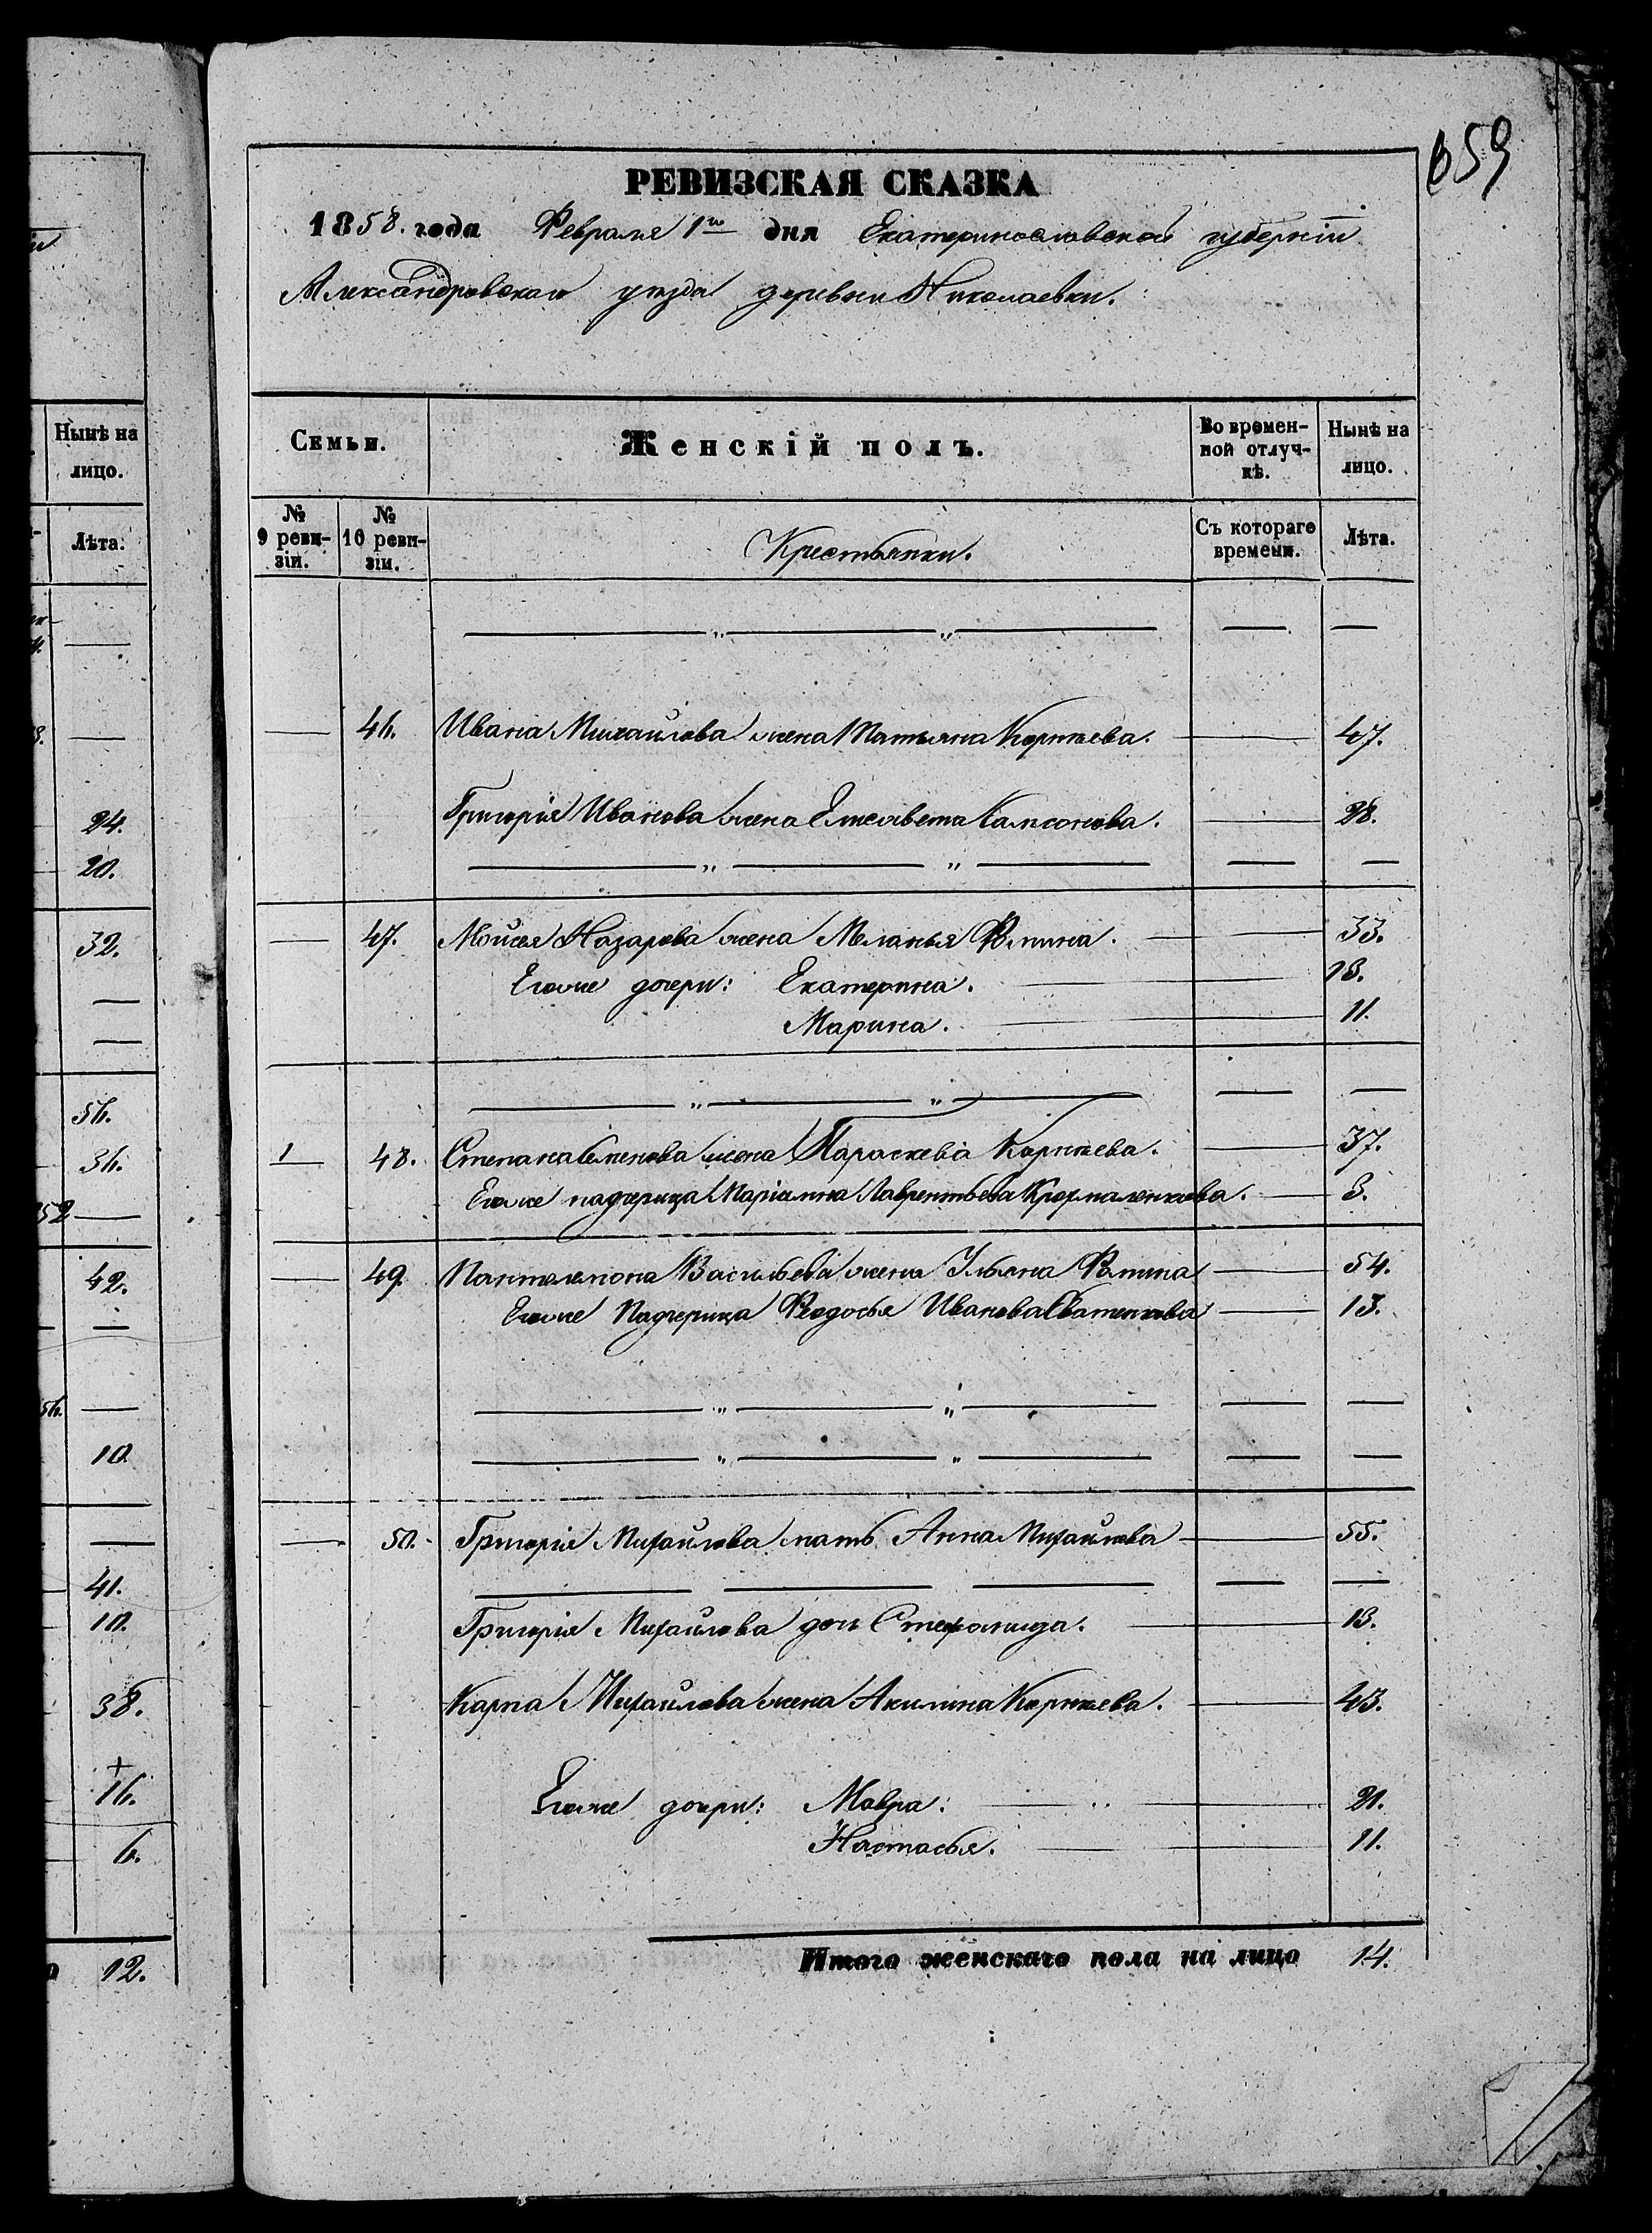 24.
20.
32.
56.
36.
52
42.
56.
10
41.
10.
38.
+
16.
6.
12.
Нынѣ на
лицо.
Лѣта.
659
РЕВИЗСКАЯ СКАЗКА
1858. года Февраля 1го дня Екатеринославской губерніи
Александровскаго уѣзда деревни Николаевки.
Семьи.
Женскій полъ.
Во времен-
ной отлуч-
кѣ.
Нынѣ на
лицо.
№
9 реви-
зіи.
№
10 реви-
зіи.
Крестьянки.
Съ котораго
времени.
Лѣта.
46. Ивана Михайлова жена Татьяна Корнѣева. 47.
Григорія Иванова жена Елисавета Самсонова. 28.
47. Мойсея Назарова жена Меланья Фомина. 33.
Егоже дочери: Екатерина. 13.
Марина. 11.
1 48. Степана Семенова жена Параскевіа Корнѣева. 37.
Егоже падчерица Маріамна Лаврентьева 8.
49. Пантелемона Васильева жена Ульяна Фомина 54.
Егоже Падчерица Феодосья Иванова 13.
50. Григорія Михайлова мать Анна Михайлова 55.
Григорія Михайлова дочь Стефанида. 13.
Карпа Михайлова жена Акилина Корнѣева. 43.
Егоже дочери: Мавра. 21.
Настасья. 11.
Итого женскаго пола на лицо 14.